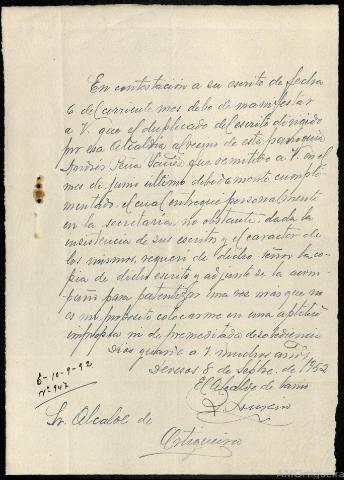 En contestación a su escrito de fecha
6 del corriente mes debo de manifestar
a V. que el duplicado del escrito dirigido
por esa Alcaldía al vecino de esta parroquia
Andrés Peña que remitió a V. en el
mes de junio último debidamente cumpli-
mentado, el cual entregué personalmente
en la secretaría, no obstante, dada la
insistencia de sus escritos y el caracter de
los mismos, requerí de dicho señor la co-
pia de dicho escrito y adjunto se la acom-
paño para patentizar una vez más que no
es mi propósito colocarme en una aptitud
impropia ni de premeditada desobediencia
Dios guarde a V. muchos años
Devesos 8 de Septbre. de 1952
El Alcalde de barrio
E- 10-9-52
nº 947
Sr. Alcalde de
Ortigueira